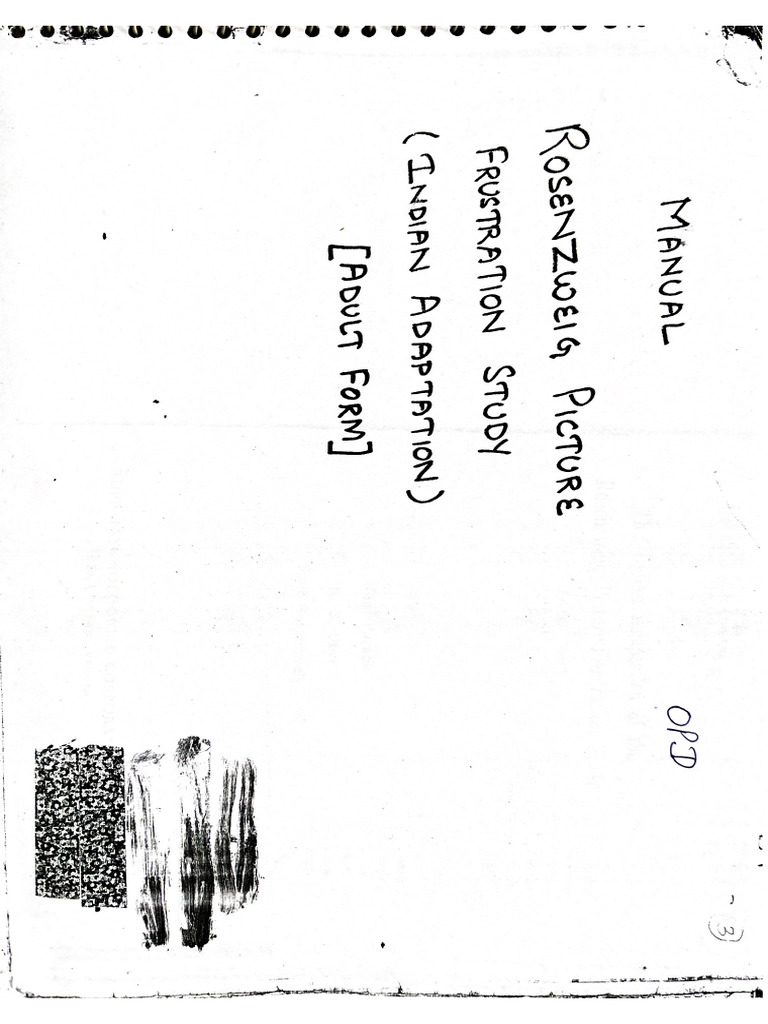 MANUAL
OPD
ROSENZWEIG PICTURE
FRUSTRATION STUDY
(INDIAN ADAPTATION)
[ADULT FORM]
3